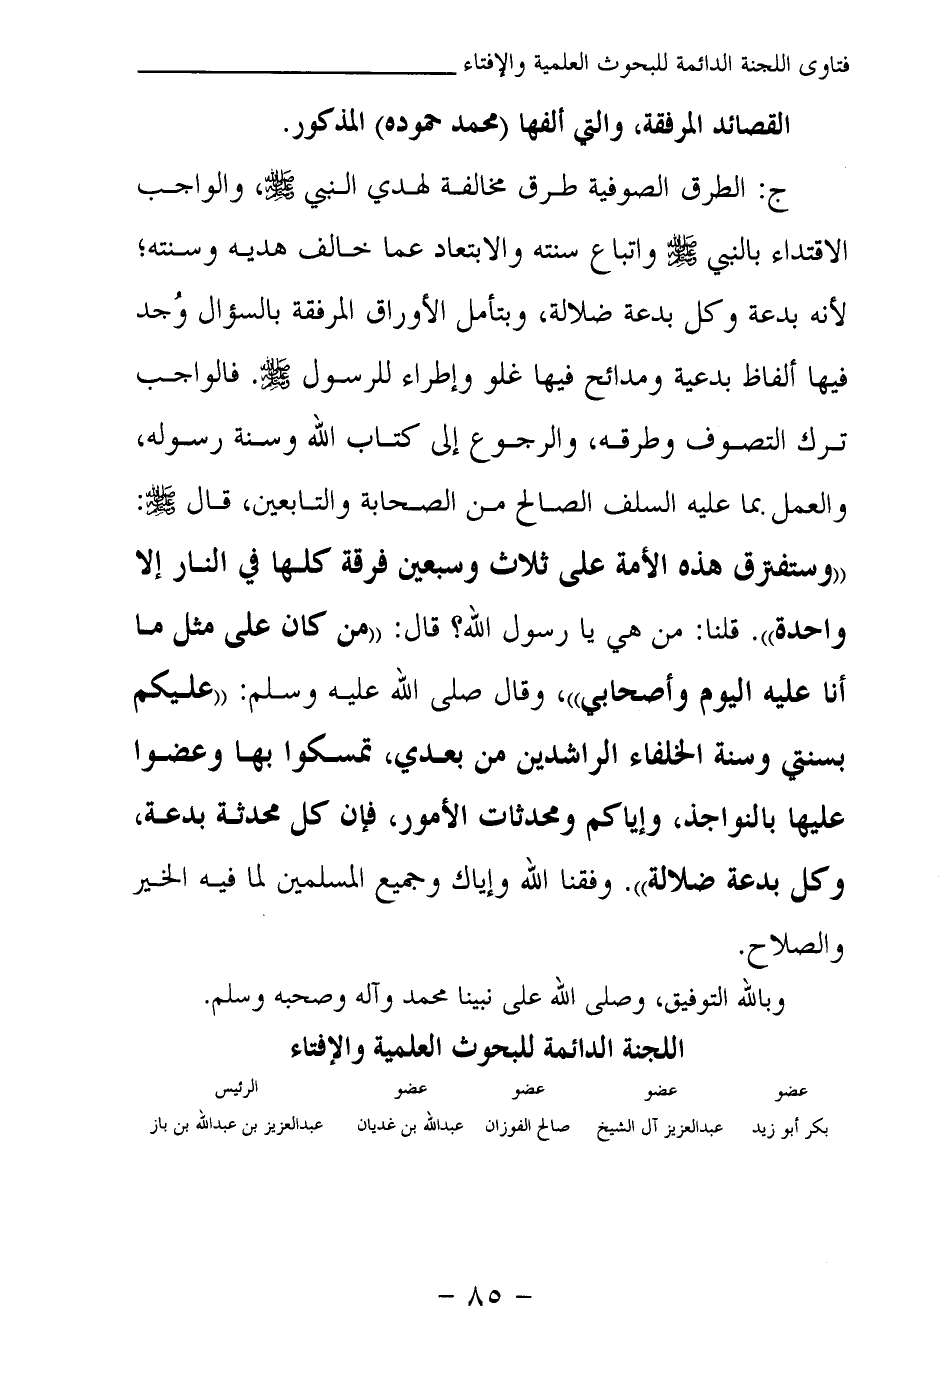 فتاوى اللجنة الدائمة للبحوث العلمية والإفتاء
القصائد المرفقة، والتي ألفها (محمد حموده) المذكور.
ج: الطرق الصوفية طرق مخالفة لهدي النبي ﷺ، والواجب
الاقتداء بالنبي ﷺ واتباع سنته والابتعاد عما خالف هديه وسنته؛
لأنه بدعة وكل بدعة ضلالة، وبتأمل الأوراق المرفقة بالسؤال وُجد
فيها ألفاظ بدعية ومدائح فيها غلو وإطراء للرسول ﷺ. فالواجب
ترك التصوف وطرقه، والرجوع إلى كتاب الله وسنة رسوله،
والعمل بما عليه السلف الصالح من الصحابة والتابعين، قال ﷺ:
((وستفترق هذه الأمة على ثلاث وسبعين فرقة كلها في النار إلا
واحدة)). قلنا: من هي يا رسول الله؟ قال: ((من كان على مثل ما
أنا عليه اليوم وأصحابي))، وقال صلى الله عليه وسلم: ((عليكم
بسنتي وسنة الخلفاء الراشدين من بعدي، تمسكوا بها وعضوا
عليها بالنواجذ، وإياكم ومحدثات الأمور، فإن كل محدثة بدعة،
وكل بدعة ضلالة)). وفقنا الله وإياك وجميع المسلمين لما فيه الخير
والصلاح.
وبالله التوفيق، وصلى الله على نبينا محمد وآله وصحبه وسلم.
اللجنة الدائمة للبحوث العلمية والإفتاء
عضو عضو عضو عضو الرئيس
بكر أبو زيد عبدالعزيز آل الشيخ صالح الفوزان عبدالله بن غديان عبدالعزيز بن عبدالله بن باز
- ٨٥ -